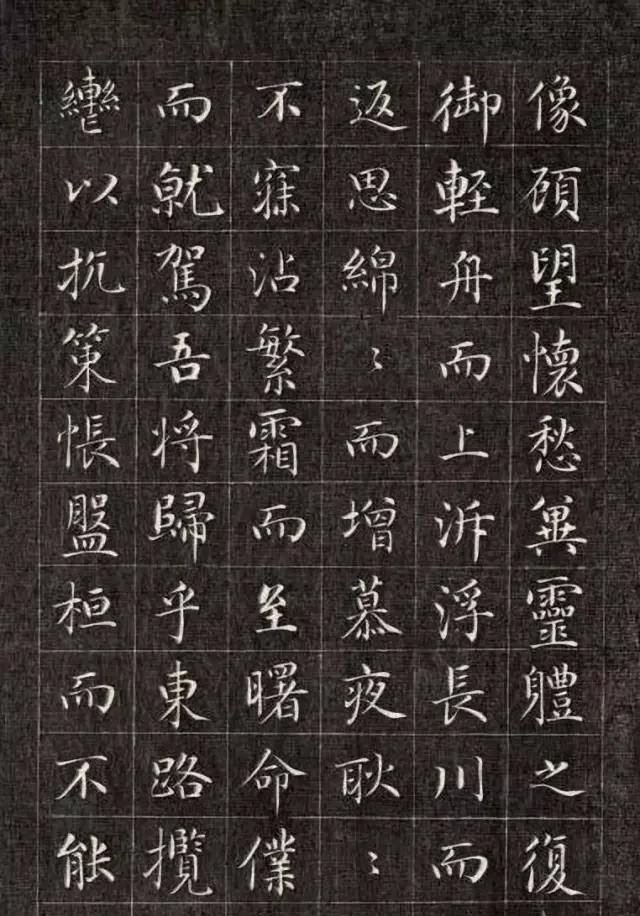 像頋望懷愁兾靈軆之復
御輊舟而上泝浮長川而
返思綿〻而增慕夜耿〻
不寐沾繁霜而至曙命僕
而就駕吾将歸乎東路攬
轡以抗策悵盤桓而不能